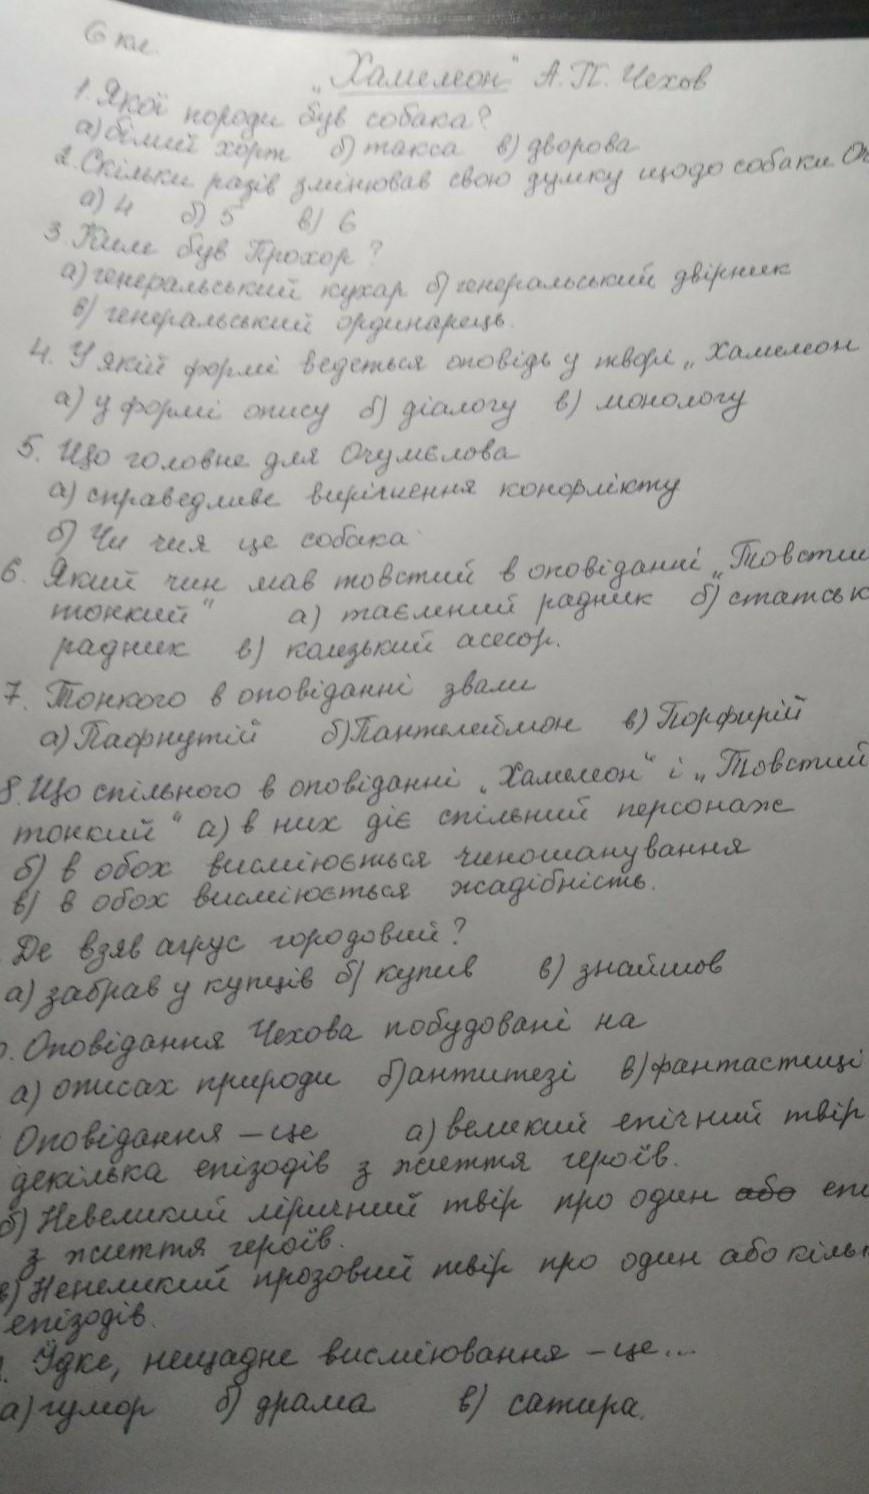 6 кл.
„Хамелеон" А.П. Чехов
1. Якої породи був собака?
а) білий хорт б) такса в) дворова
2. Скільки разів змінював свою думку щодо собаки Оч
а) 4 б) 5 в) 6
3. Ким був Прохор?
а) генеральський кухар б) генеральський двірник
в) генеральський ординарець.
4. У якій формі ведеться оповідь у творі „Хамелеон
а) у формі опису б) діалогу в) монологу
5. Що головне для Очумєлова
а) справедливе вирішення конфлікту
б) Чи чия це собака
6. Який чин мав товстий в оповіданні „Товстий
тонкий" а) таємний радник б) статськ
радник в) колезький асесор.
7. Тонкого в оповіданні звали
а) Пафнутій б) Пантелеймон в) Порфирій
8. Що спільного в оповіданні „Хамелеон" і „Товстий
тонкий" а) в них діє спільний персонаж
б) в обох висміюється чиношанування
в) в обох висміюється жадібність.
Де взяв агрус городовий?
а) забрав у купців б) купив в) знайшов
0. Оповідання Чехова побудовані на
а) описах природи б) антитезі в) фантастиці
Оповідання – це а) великий епічний твір
декілька епізодів з життя героїв.
б) Невеликий ліричний твір про один або епі
з життя героїв.
в) Ненеликий прозовий твір про один або кільк
епізодів.
Їдке, нещадне висміювання – це...
а) гумор б) драма в) сатира.